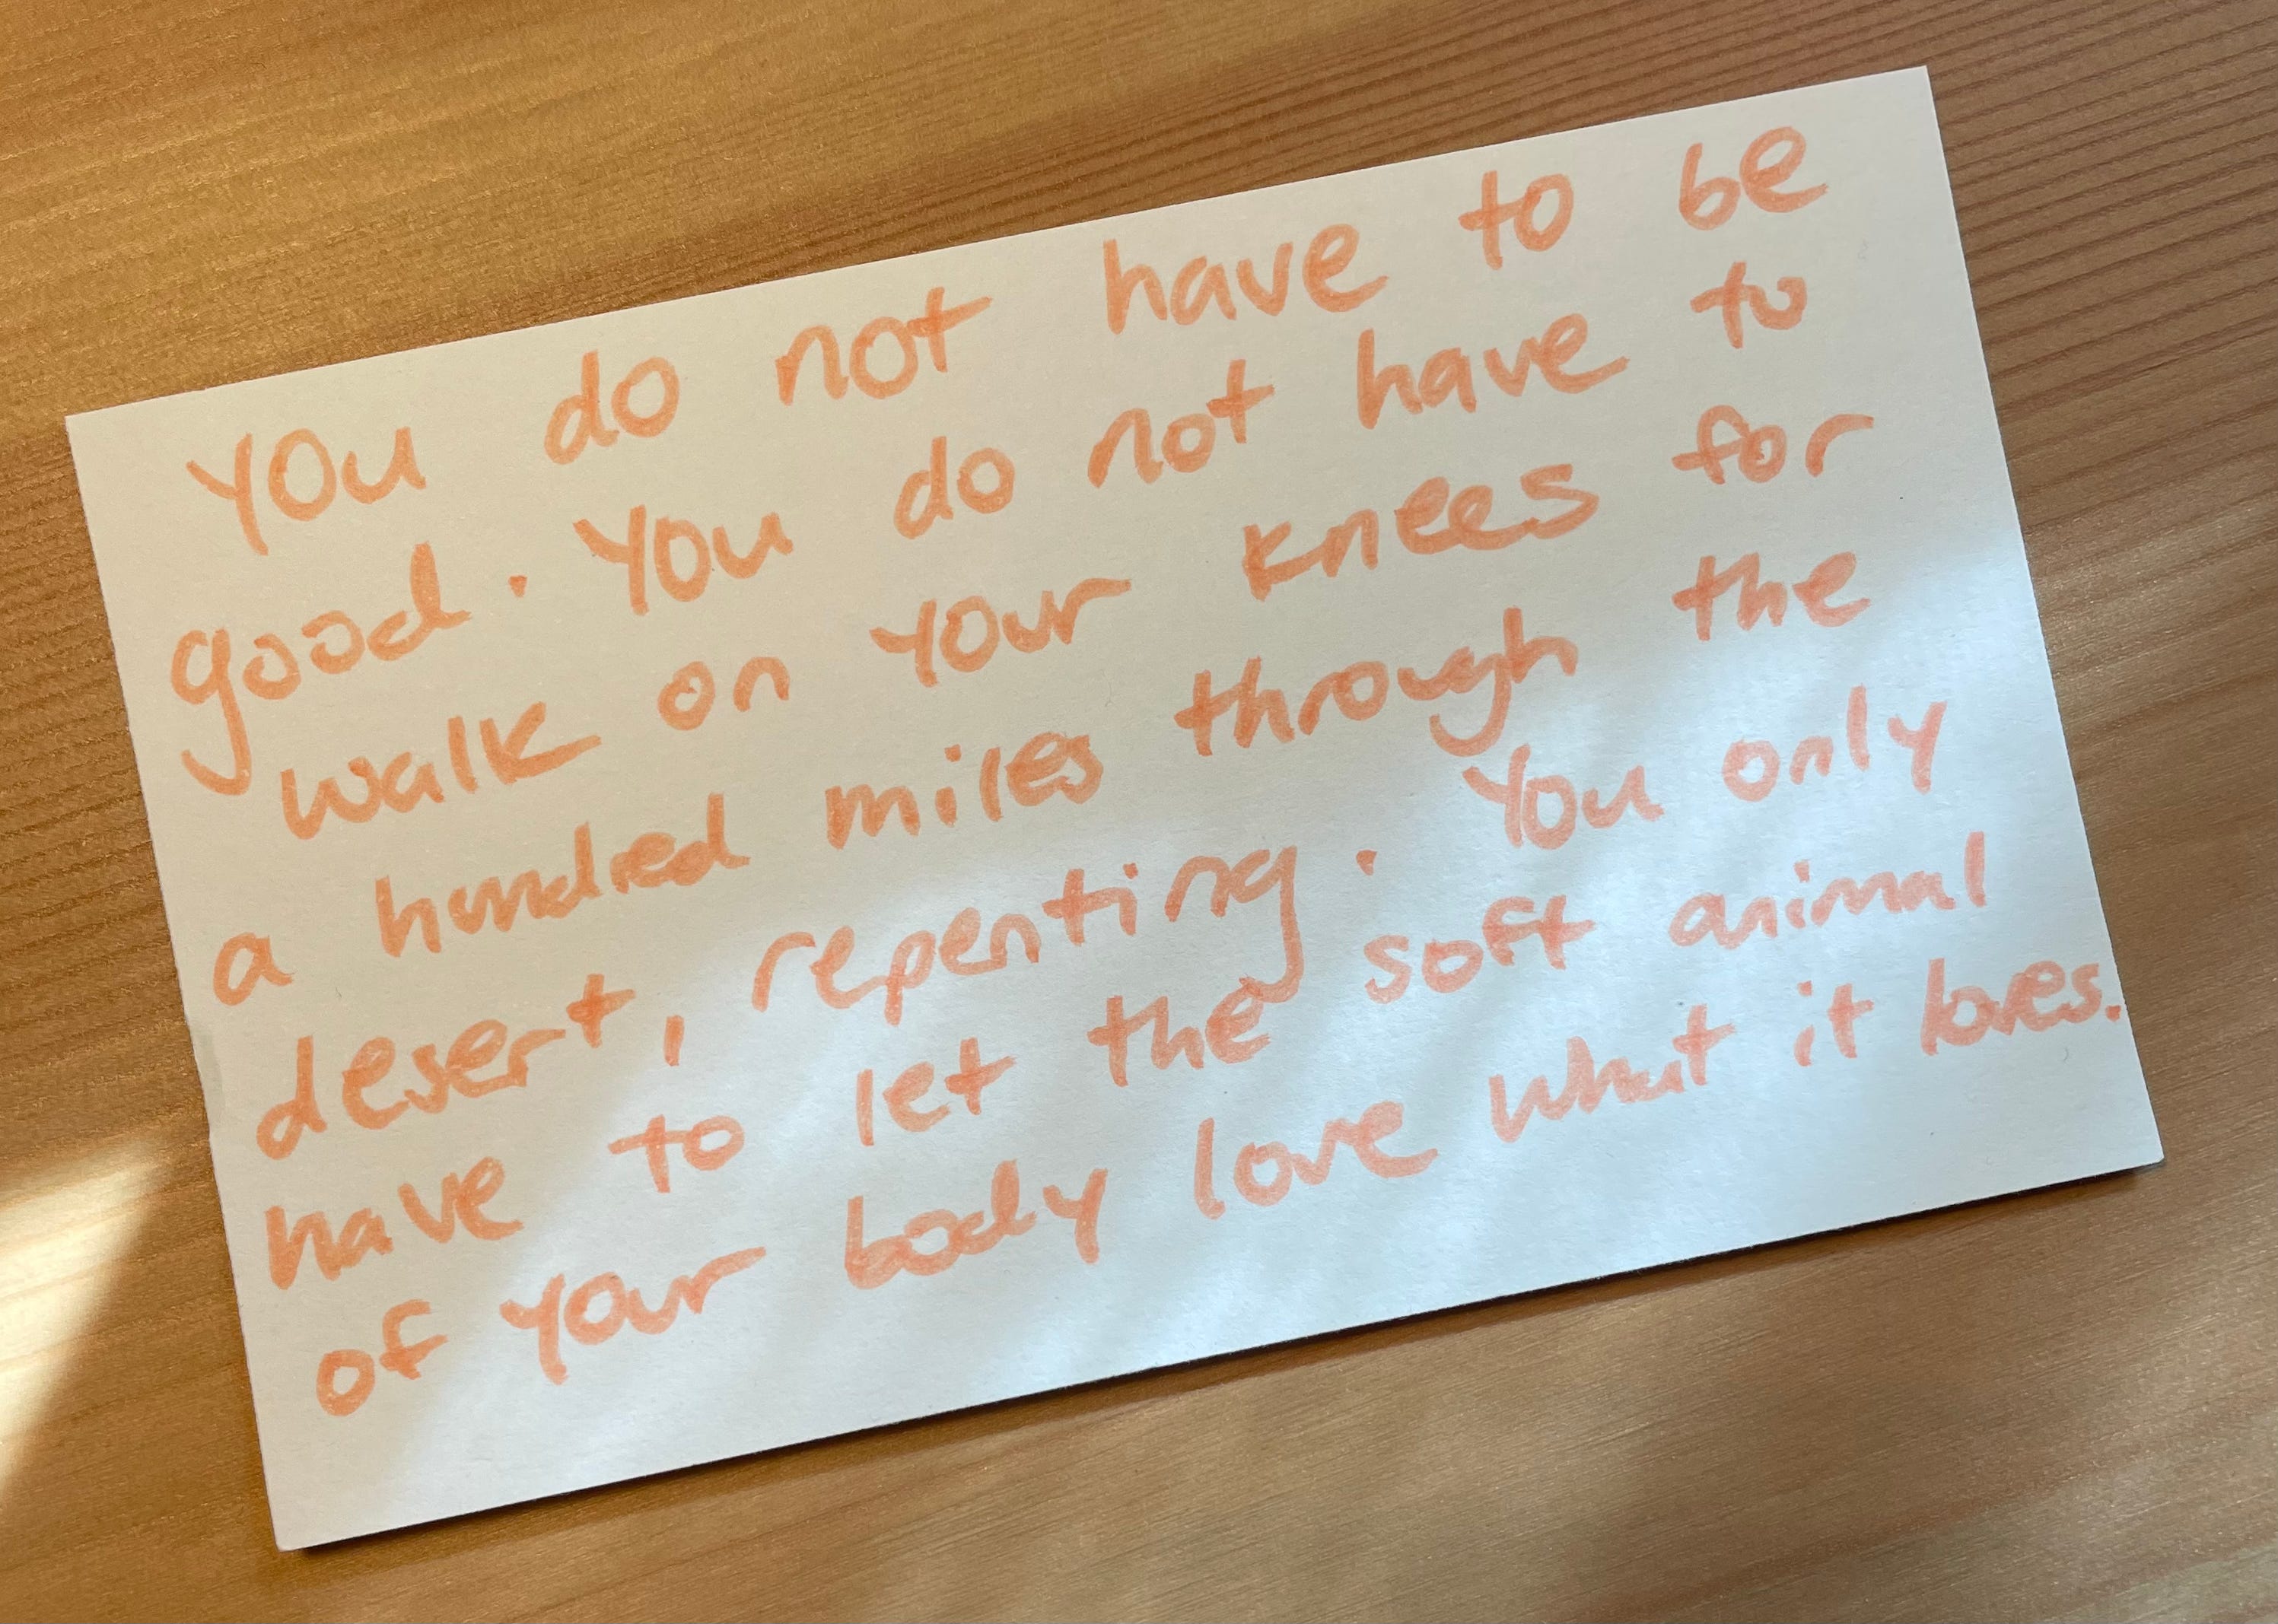 You do not have to be
good. You do not have to
walk on your knees for
a hundred miles through the
desert, repenting. You only
have to let the soft animal
of your body love what it loves.